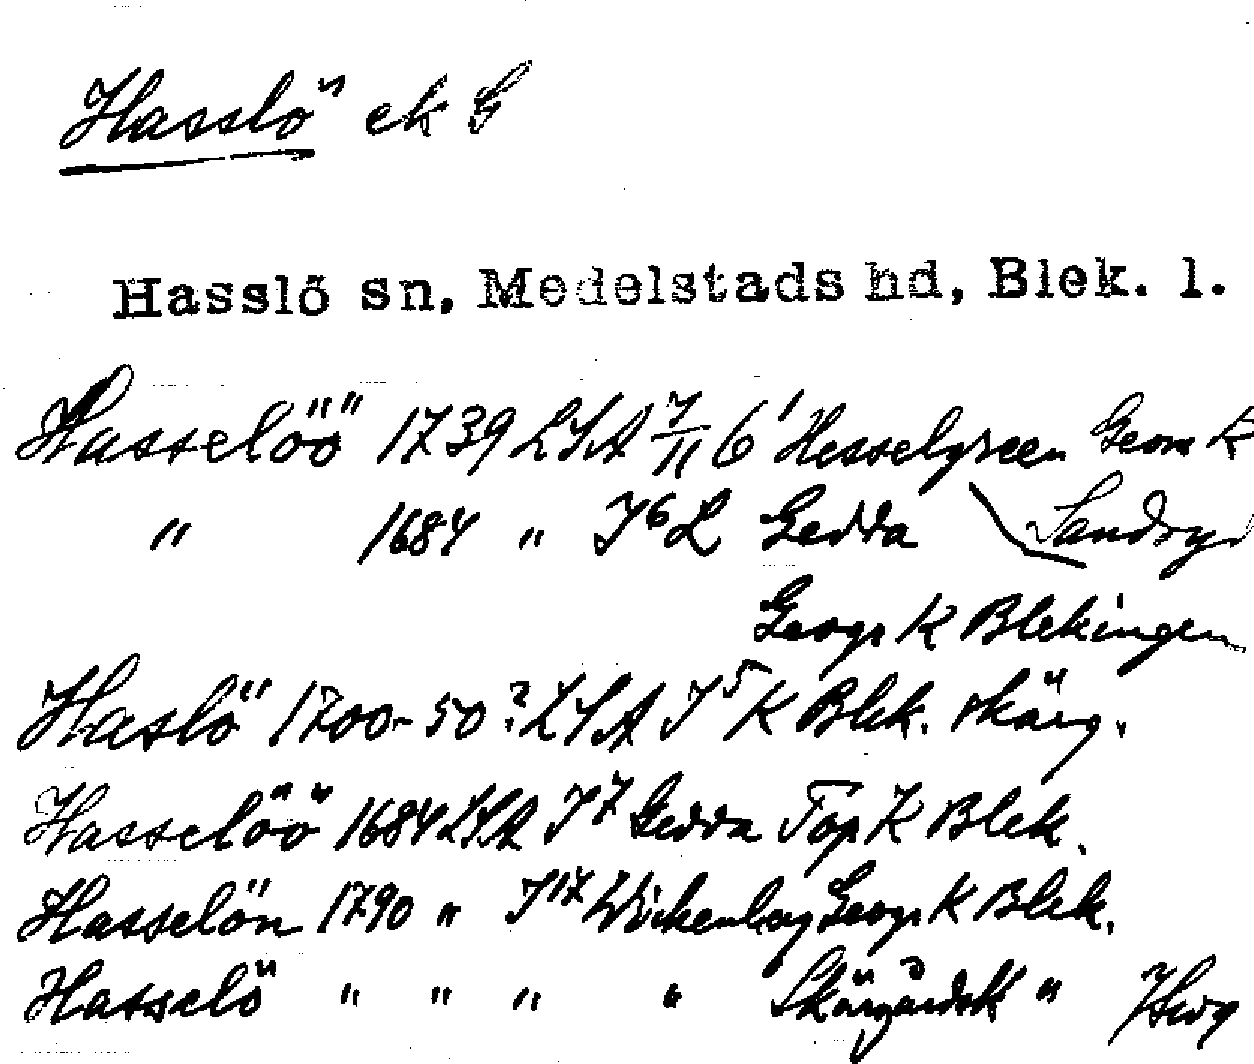 Hasslö ek G
Hasslö sn, Medelstads hd, Blek. l.
Hasselöö 1739 LSA 7/11 6' Hesselgreen Geom K
" 1684 " I6 L Gedda Sandryd
Geogr K Blekingen
Haslö 1700-50? LSA I5 K Blek. skärg.
Hasselöö 1684 LSA I7 Gedda Top K Blek.
Hasselön 1790 " I17 Wickenberg Geogr K Blek.
Hasselö " " " " SkärgårdsK "